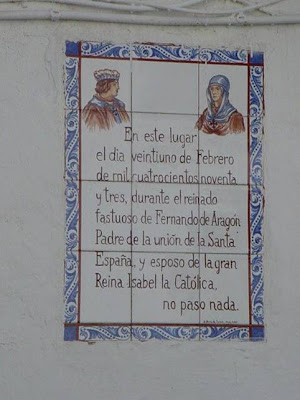 En este lugar
el día veintiuno de Febrero
de mil cuatrocientos noventa
y tres, durante el reinado
fastuoso de Fernando de Aragón
Padre de la unión de la Santa
España, y esposo de la gran
Reina Isabel la Católica,
no paso nada.